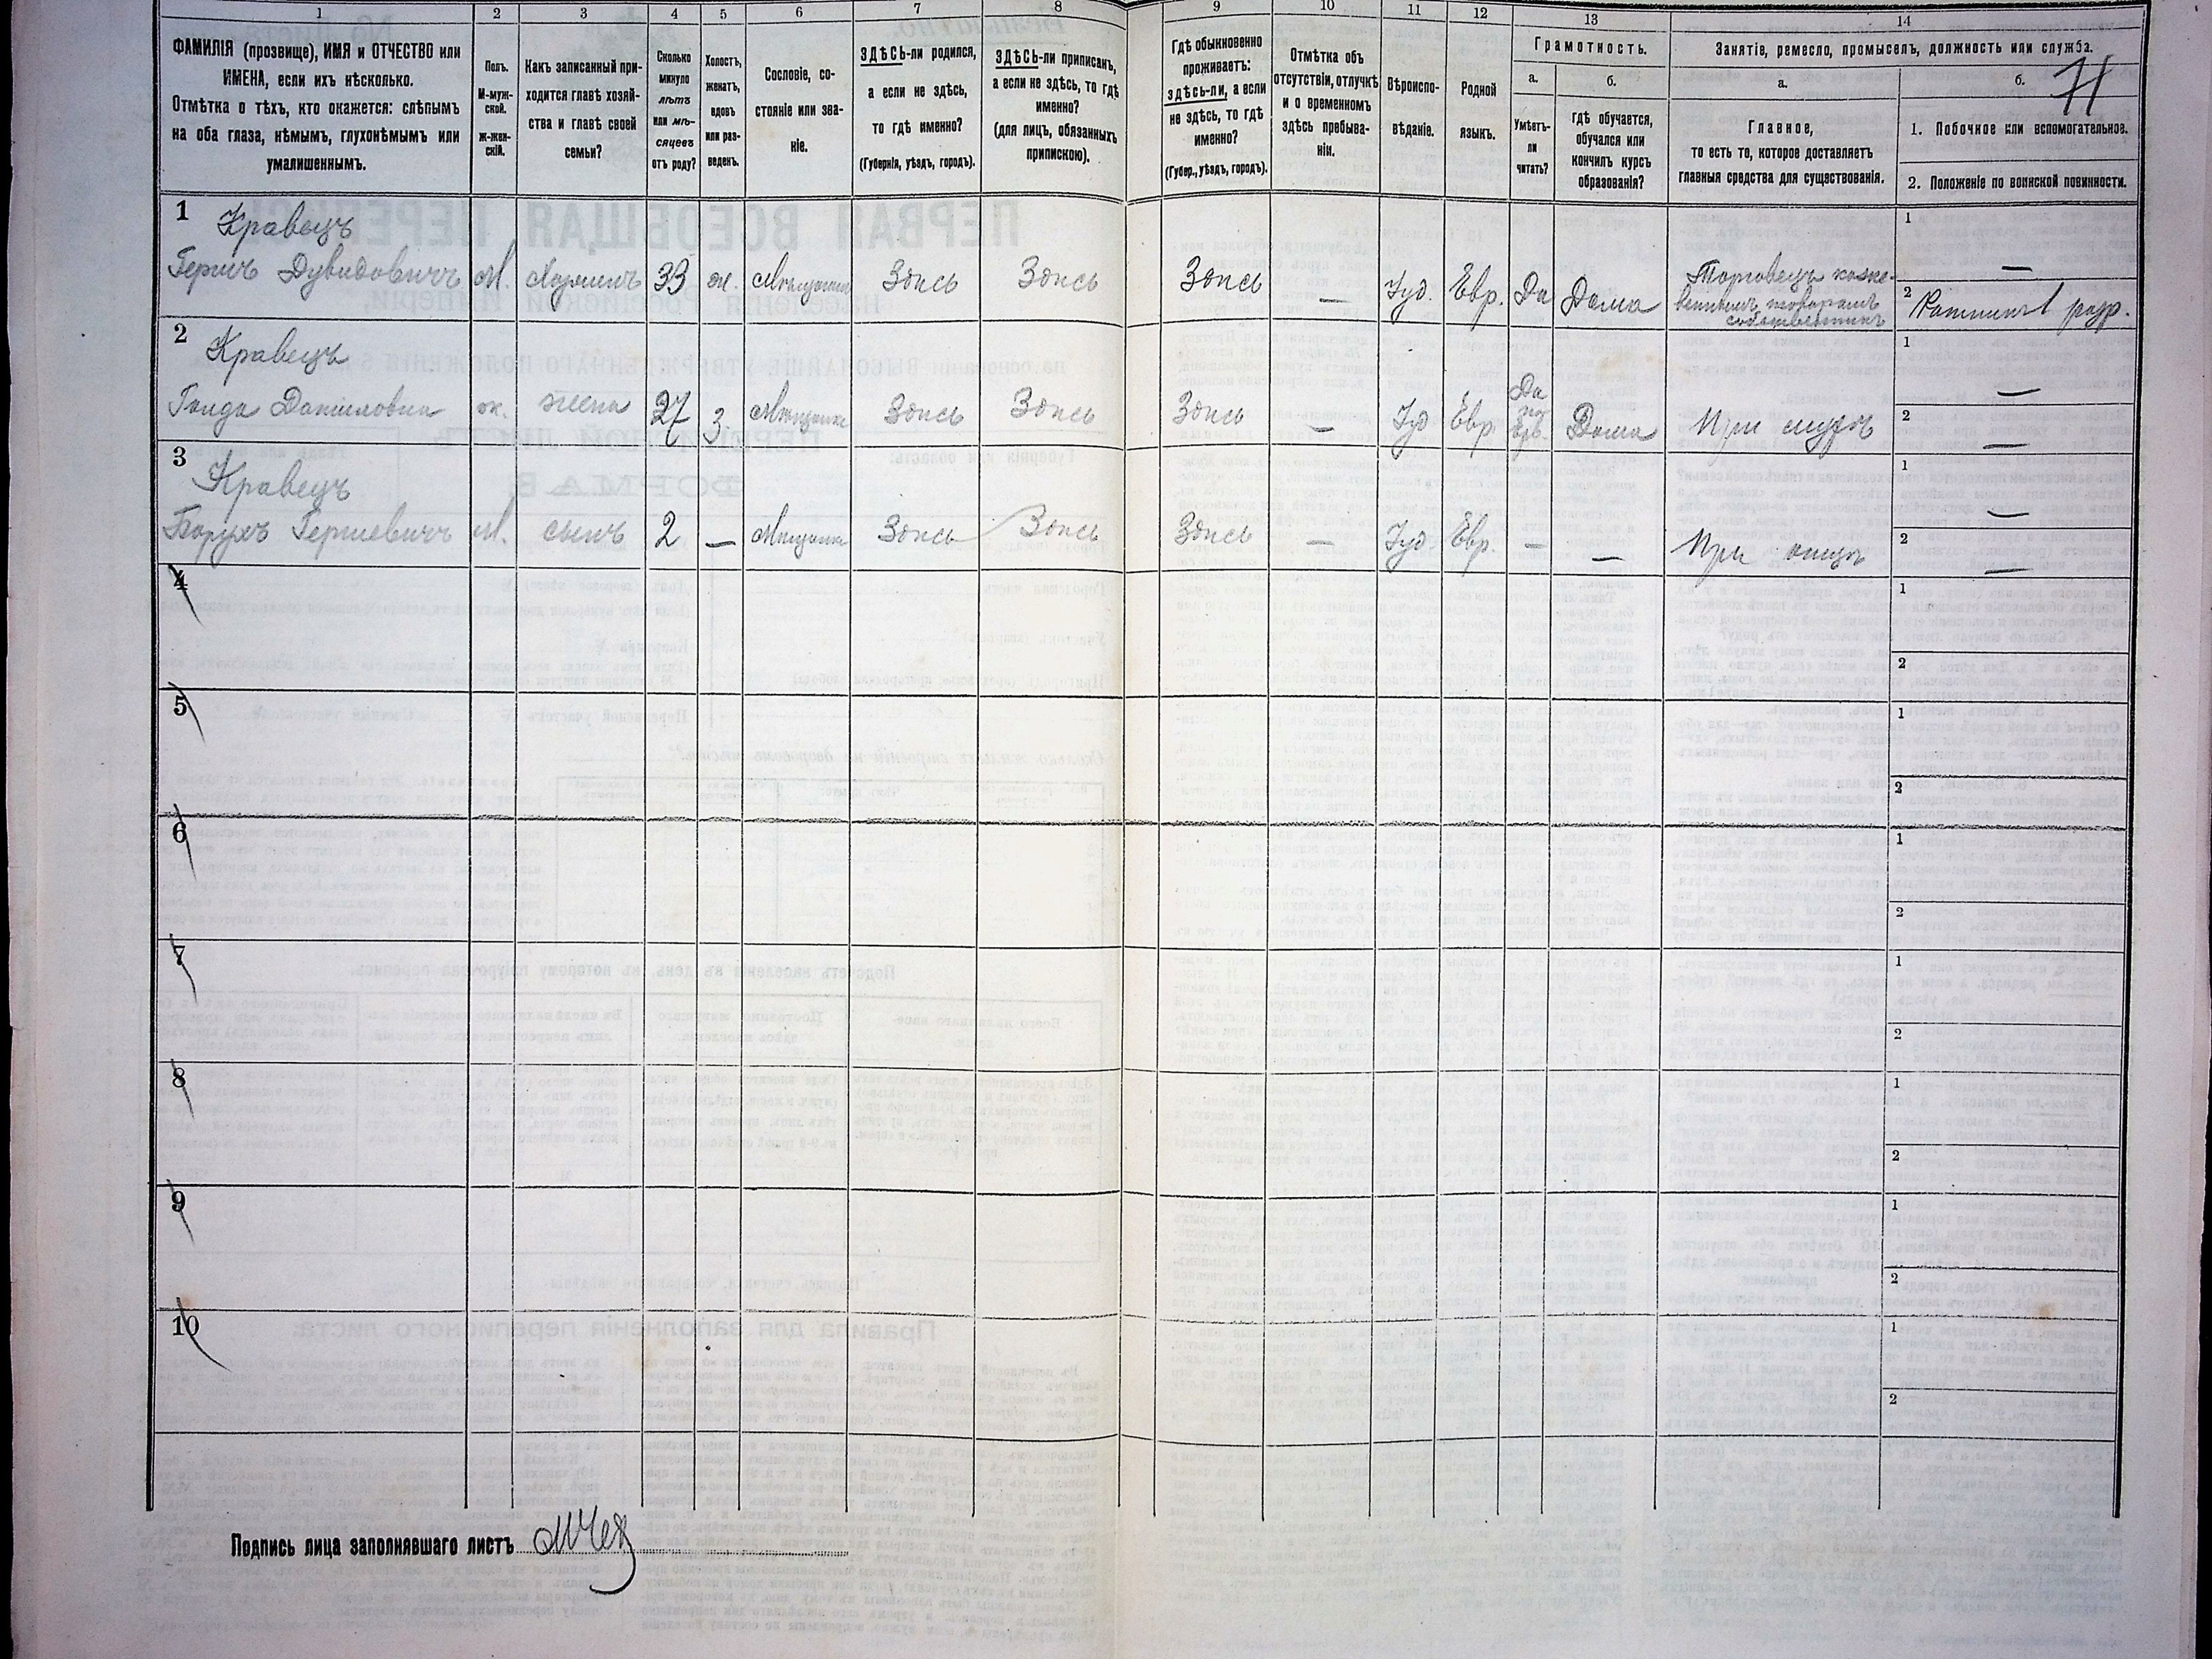 1 2 3 4 5 6 7 8 9 10 11 12 13 14
ФАМИЛІЯ (прозвище), ИМЯ и ОТЧЕСТВО или
ИМЕНА, если ихъ нѣсколько.
Отмѣтка о тѣхъ, кто окажется: слѣпымъ
на оба глаза, нѣмымъ, глухонѣмымъ или
умалишеннымъ.
Полъ.
М-муж-
ской.
ж-жен-
скій.
Какъ записанный при-
ходится главѣ хозяй-
ства и главѣ своей
семьи?
Сколько
минуло
лѣтъ
или мѣ-
сяцевъ
отъ роду?
Холостъ,
женатъ,
вдовъ
или раз-
веденъ.
Сословіе, со-
стояніе или зва-
ніе.
ЗДѢСЬ-ли родился,
а если не здѣсь,
то гдѣ именно?
(Губернія, уѣздъ, городъ).
ЗДѢСЬ-ли приписанъ,
а если не здѣсь, то гдѣ
именно?
(для лицъ, обязанныхъ
припискою).
Гдѣ обыкновенно
проживаетъ:
здѣсь-ли, а если
не здѣсь, то гдѣ
именно?
(Губер., уѣздъ, городъ).
Отмѣтка объ
отсутствіи, отлучкѣ
и о временномъ
здѣсь пребыва-
ніи.
Вѣроиспо-
вѣданіе.
Родной
языкъ.
Грамотность.
а.
Умѣетъ-
ли
читать?
б.
гдѣ обучается,
обучался или
кончилъ курсъ
образованія?
Занятіе, ремесло, промыселъ, должность или служба.
а.
Главное,
то есть то, которое доставляетъ
главныя средства для существованія.
б.
71
1. Побочное или вспомогательное.
2. Положеніе по воинской повинности.
1 Кравецъ
Гершъ Дувидовичъ М. Хозяинъ 33 ж. Мѣщанинъ Здѣсь Здѣсь Здѣсь — Іуд. Евр. Да Дома
Торговецъ коже-
веннымъ товаромъ
собственникъ
1 —
2 Ратникъ 1 разр.
2 Кравецъ
Даниловна ж. жена 27 з. Мѣщанка Здѣсь Здѣсь Здѣсь — Іуд Евр.
Да
по
Евр.
Дома При мужѣ
1 —
2 —
3 Кравецъ
Борухъ Гершевичъ М. сынъ 2 — Мѣщанинъ Здѣсь Здѣсь Здѣсь — Іуд. Евр. — — При отцѣ
1 —
2 —
4 1
2
5 1
2
6 1
2
7 1
2
8 1
2
9 1
2
10 1
2
Подпись лица заполнявшаго листъ